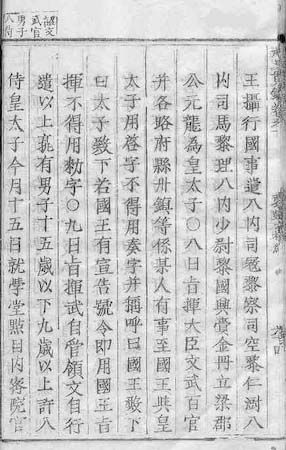 詔文
武官
男子
入侍
王攝行國事遣入內司冦黎察司空黎仁澍入
內司馬黎理入內少尉黎國興賫金冊立梁郡
公元龍為皇太子〇八日旨揮大臣文武百官
并各路府縣州鎮等係某人有事至國王與皇
太子用啓字不得用奏字并稱呼曰國王敎下
曰太子敎下若國王有宣告號令即用國王旨
揮不得用勑字〇九日旨揮武自管領文自行
遣以上竟有男子十五歲以下九歲以上許入
侍皇太子今月十五日就學堂點目內密院官